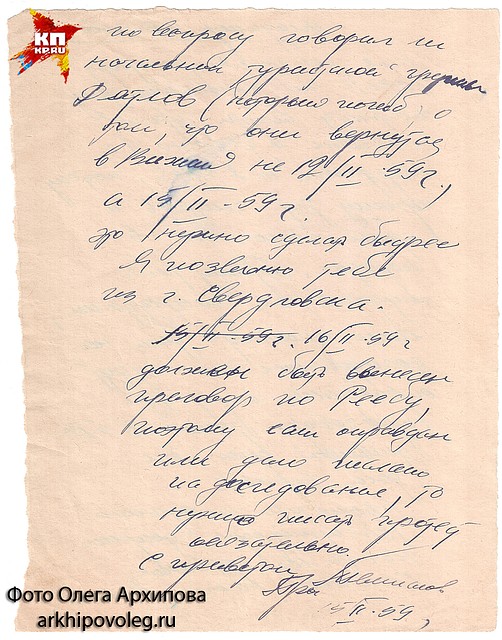 КП
KP.RU
по вопросу говорил ли
начальник турисской группы
Дятлов (который погиб) о
том, что они вернутся
в Вижай не 12/II-59г.,
а 15/II-59г.
это нужно сделать быстрее
Я позвоню тебе
из г. Свердловска.
15/II-59г. 16/II-59г
должен быть вынесен
приговор по Реесу,
поэтому если оправдан
или дело послано
на доследование, то
нужно писать протест
обязательно
С приветом
15/II-59,
Фото Олега Архипова
arkhipovoleg.ru